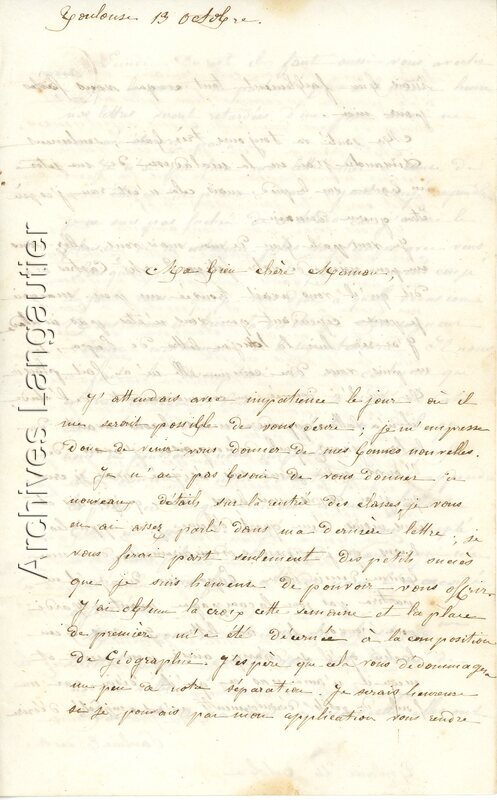 Toulouse 13 Octobre.
Ma bien chère Maman,
J'attendais avec impatience le jour où il
me serait possible de vous écrire ; je m'empresse
donc de venir vous donner de mes bonnes nouvelles.
Je n'ai pas besoin de vous donner de
nouveaux détails sur la rentrée des classes, je vous
en ai assez parlé dans ma dernière lettre ; je
vous ferai part seulement des petits succès
que je suis heureuse de pouvoir vous offrir.
J'ai obtenu la croix cette semaine et la place
de première m'a été décernée à la composition
de Géographie. J'espère que cela vous dédommagera
un peu de notre séparation. Je serais heureuse
si je pouvais par mon application vous rendre
Archives Langautier